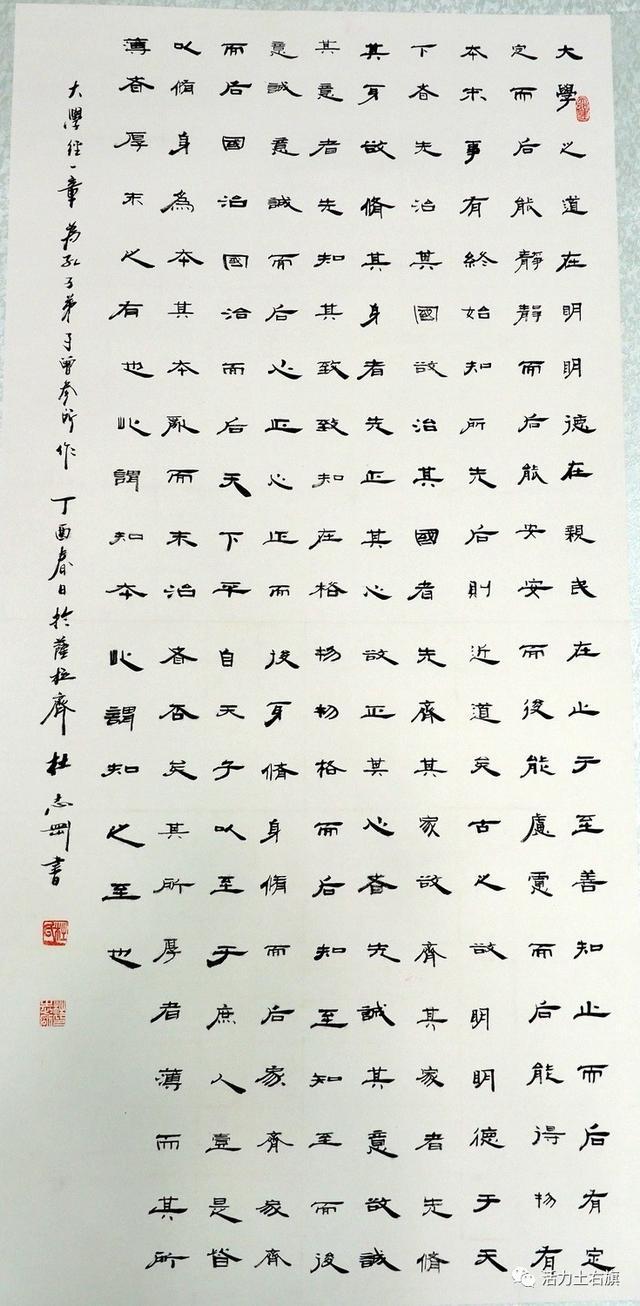 大學之道在明明德在親民在止于至善知止而后有定
定而后能靜靜而后能安安而後能慮慮而后能得物有
本末事有終始知所先后則近道矣古之欲明明德于天
下者先治其國欲治其國者先齊其家欲齊其家者先脩
其身欲脩其身者先正其心欲正其心者先誠其意欲誠
其意者先知其致致知在格物物格而后知至知至而後
意誠意誠而后心正心正而後身脩身脩而后家齊家齊
而后國治國治而后天下平自天子以至于庶人壹是皆
以脩身為本其本亂而末治者否矣其所厚者薄而其所
薄者厚未之有也此謂知本此謂知之至也
大學經一章為孔子弟子曾參所作丁酉春日於薩拉齊杜志剛書
活力土右旗